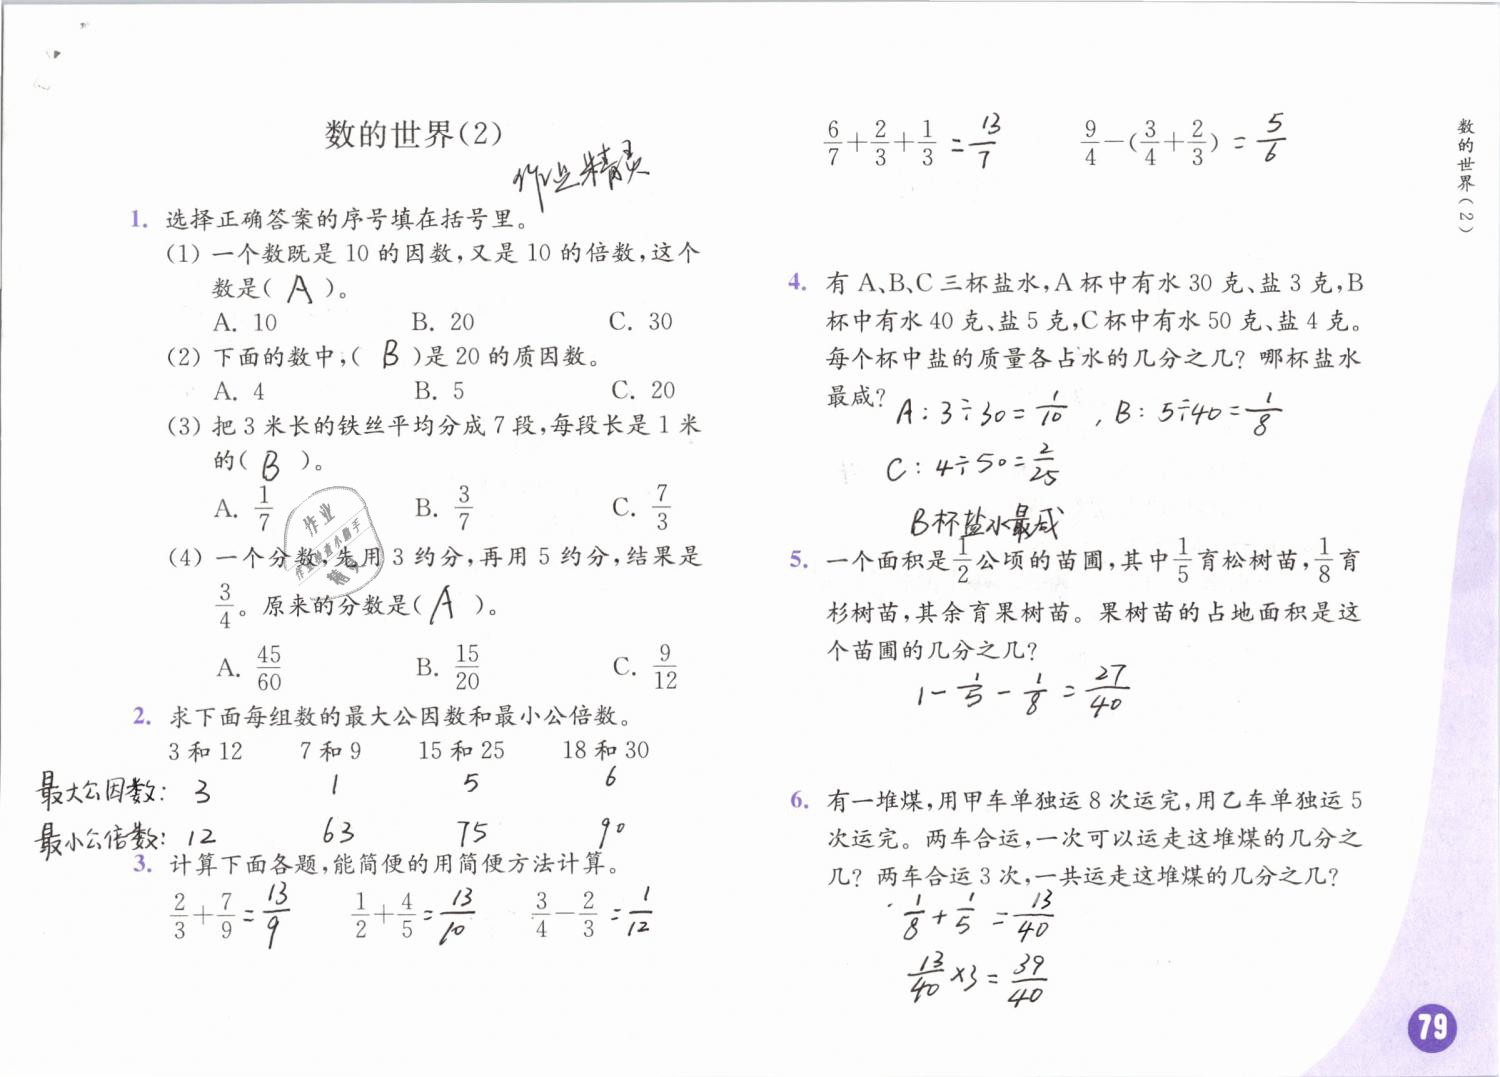 数的世界(2)
作业精灵
1. 选择正确答案的序号填在括号里。
(1) 一个数既是 10 的因数,又是 10 的倍数,这个
数是( A )。
A. 10 B. 20 C. 30
(2) 下面的数中,( B )是 20 的质因数。
A. 4 B. 5 C. 20
(3) 把 3 米长的铁丝平均分成 7 段,每段长是 1 米
的( B )。
A. 1/7 B. 3/7 C. 7/3
(4) 一个分数,先用 3 约分,再用 5 约分,结果是
3/4。原来的分数是( A )。
A. 45/60 B. 15/20 C. 9/12
2. 求下面每组数的最大公因数和最小公倍数。
3 和 12 7 和 9 15 和 25 18 和 30
最大公因数: 3 1 5 6
最小公倍数: 12 63 75 90
3. 计算下面各题,能简便的用简便方法计算。
2/3+7/9=13/9 1/2+4/5=13/10 3/4-2/3=1/12
6/7+2/3+1/3=13/7 9/4-(3/4+2/3)=5/6
4. 有 A、B、C 三杯盐水,A 杯中有水 30 克、盐 3 克,B
杯中有水 40 克、盐 5 克,C 杯中有水 50 克、盐 4 克。
每个杯中盐的质量各占水的几分之几? 哪杯盐水
最咸?
A: 3÷30=1/10 , B: 5÷40=1/8
C: 4÷50=2/25
B杯盐水最咸
5. 一个面积是1/2公顷的苗圃,其中1/5育松树苗,1/8育
杉树苗,其余育果树苗。果树苗的占地面积是这
个苗圃的几分之几?
1-1/5-1/8=27/40
6. 有一堆煤,用甲车单独运 8 次运完,用乙车单独运 5
次运完。两车合运,一次可以运走这堆煤的几分之
几? 两车合运 3 次,一共运走这堆煤的几分之几?
1/8+1/5=13/40
13/40×3=39/40
数的世界(2)
79
作业